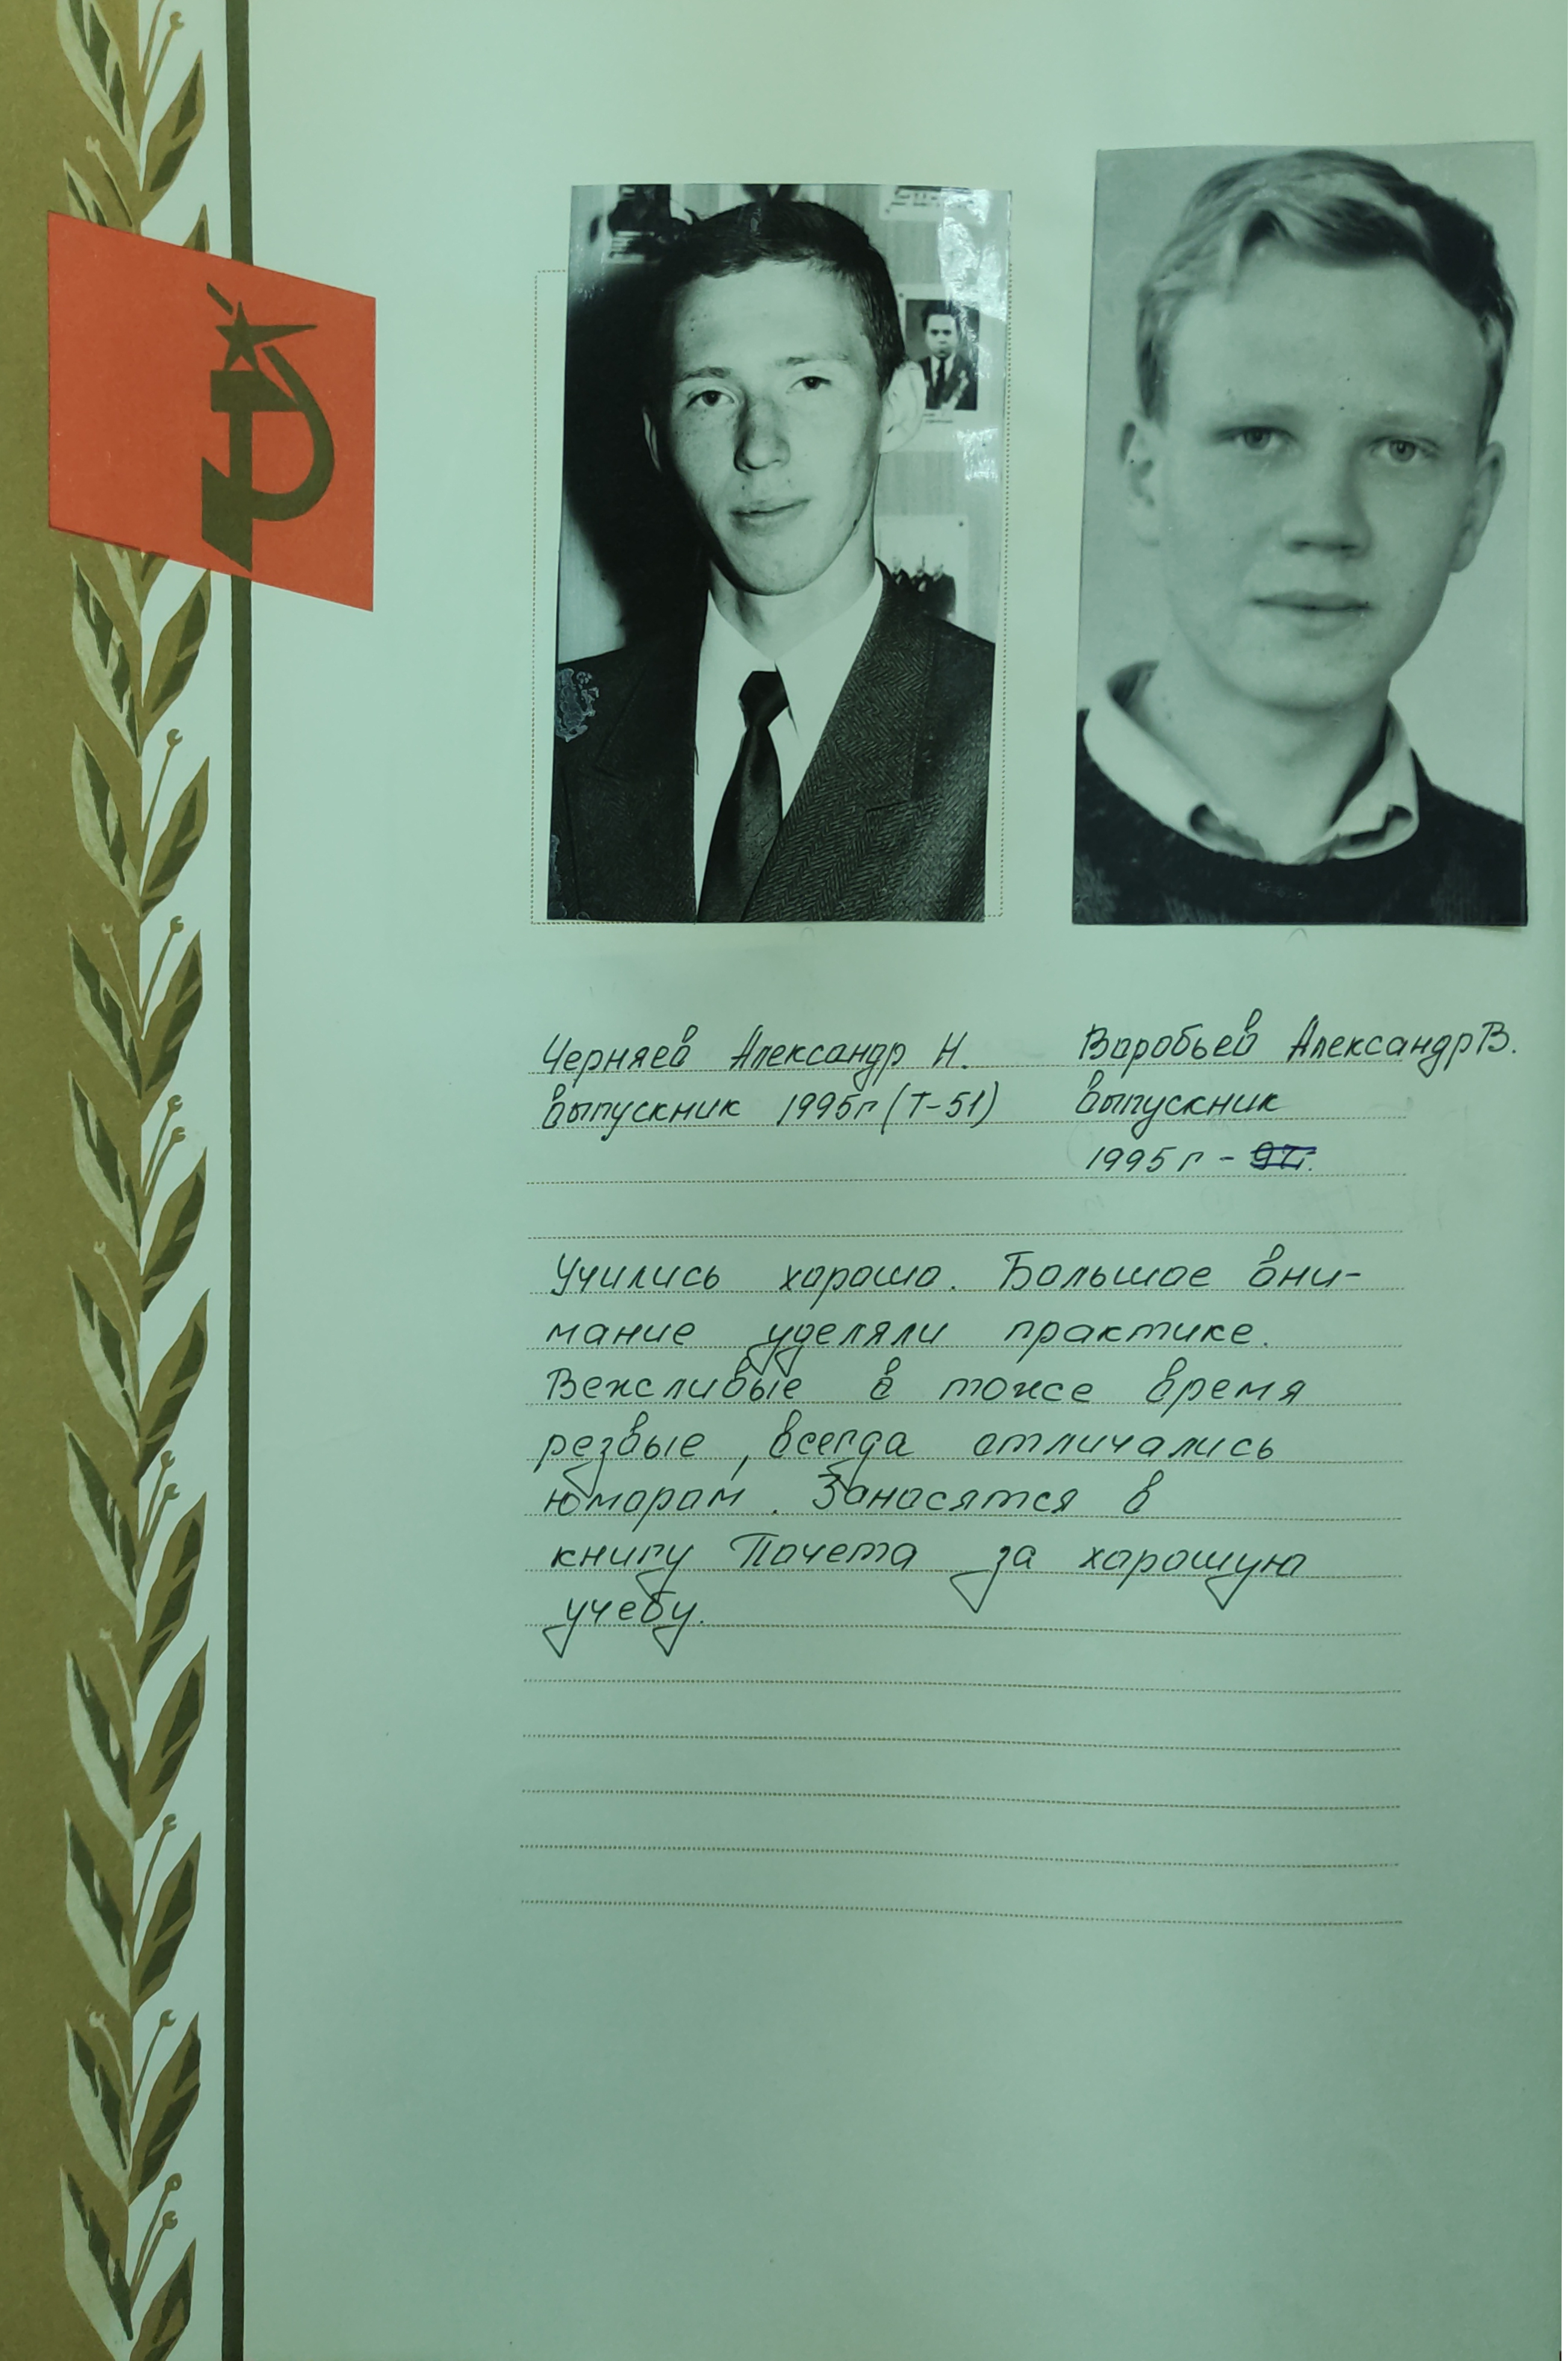 Черняев Александр Н.
выпускник 1995г (Т-51)
Воробьев Александр В.
выпускник
1995г -
Учились хорошо. Большое вни-
мание уделяли практике.
Вежливые в тоже время
резвые, всегда отличались
юмором. Заносятся в
книгу Почета за хорошую
учебу.